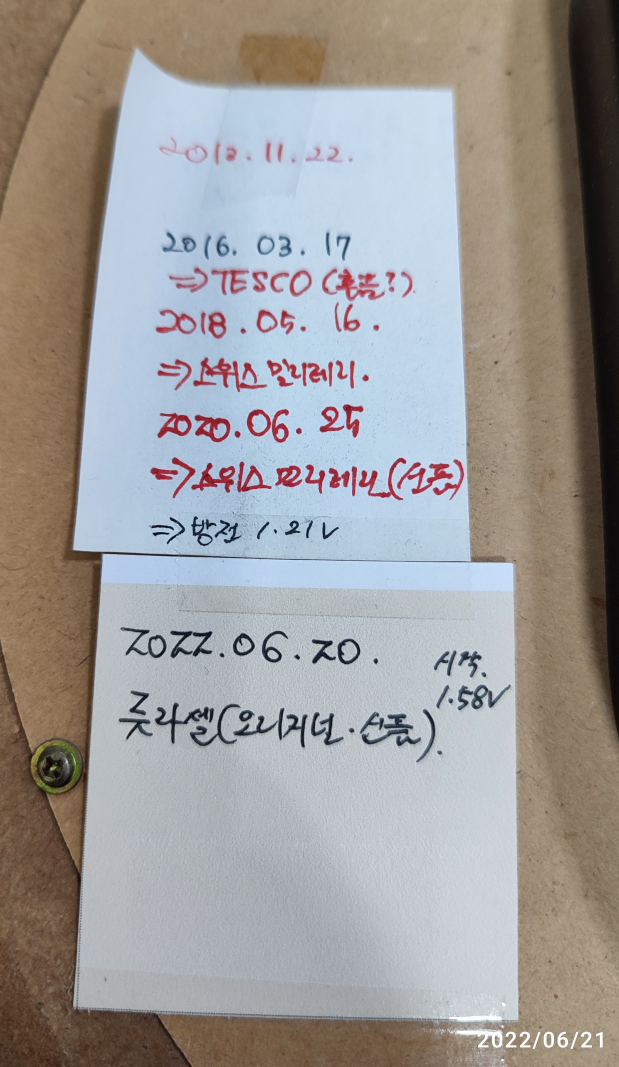 2012.11.22.
2016. 03. 17
⇒TESCO (홈플?).
2018.05. 16.
⇒스위스 밀리터리.
2020.06. 25
⇒스위스 밀리터리(신품)
⇒방전 1.21V
2022.06.20.
시작.
1.58V
듀라셀(오리지널·신품).
2022/06/21